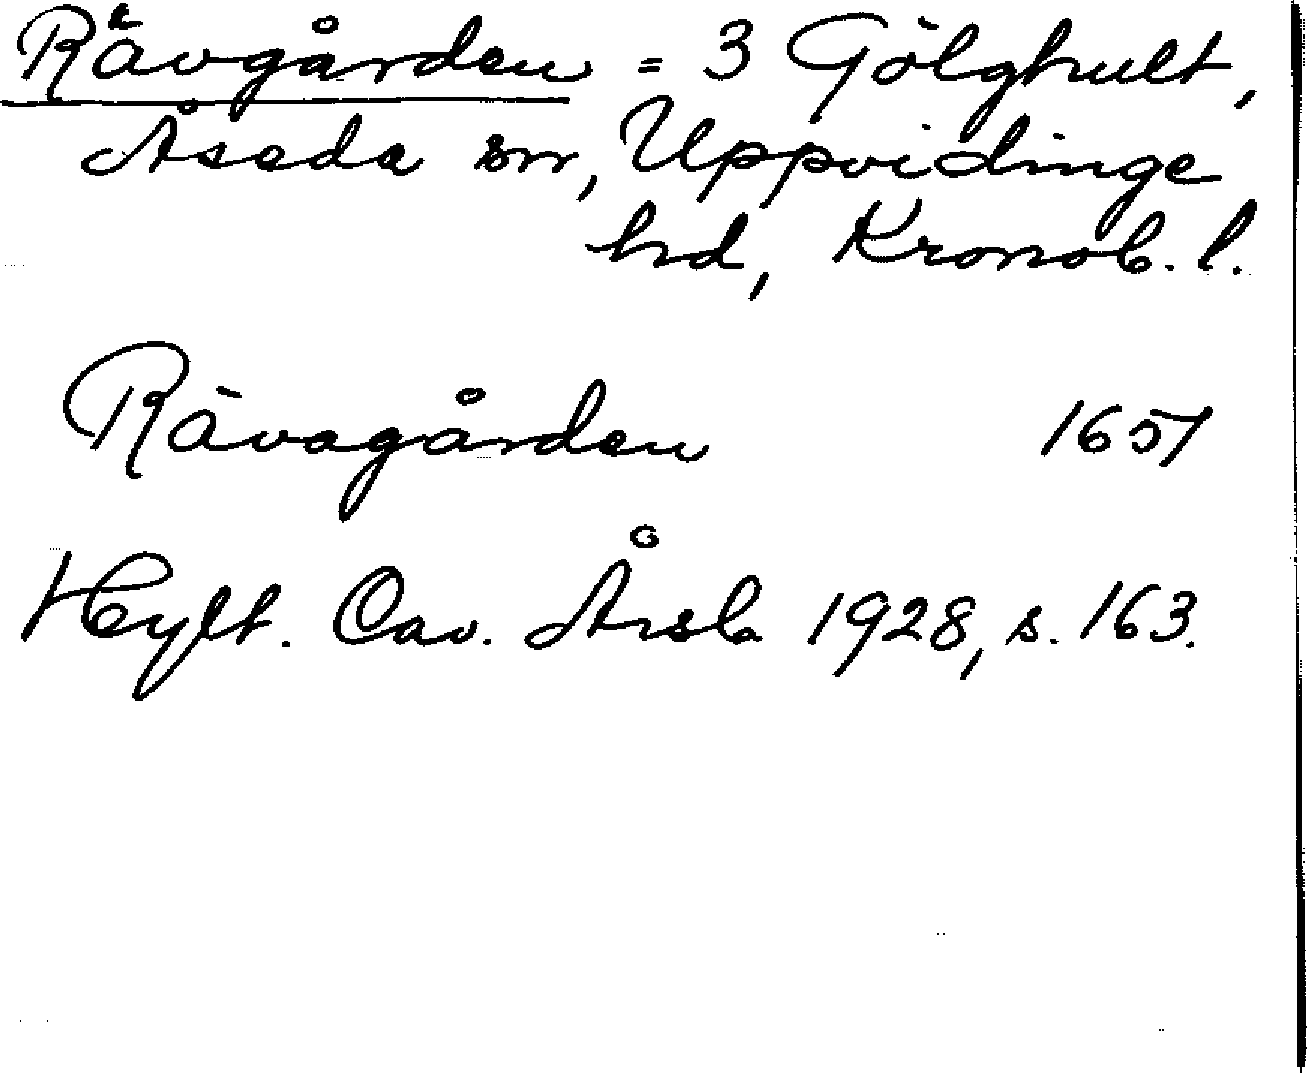 Rävgården = 3 Gölghult,
Åseda sn, Uppvidinge
hd, Kronob. l.
Rävagården 1657
Hylt. Cav. Årsb 1928, s. 163.